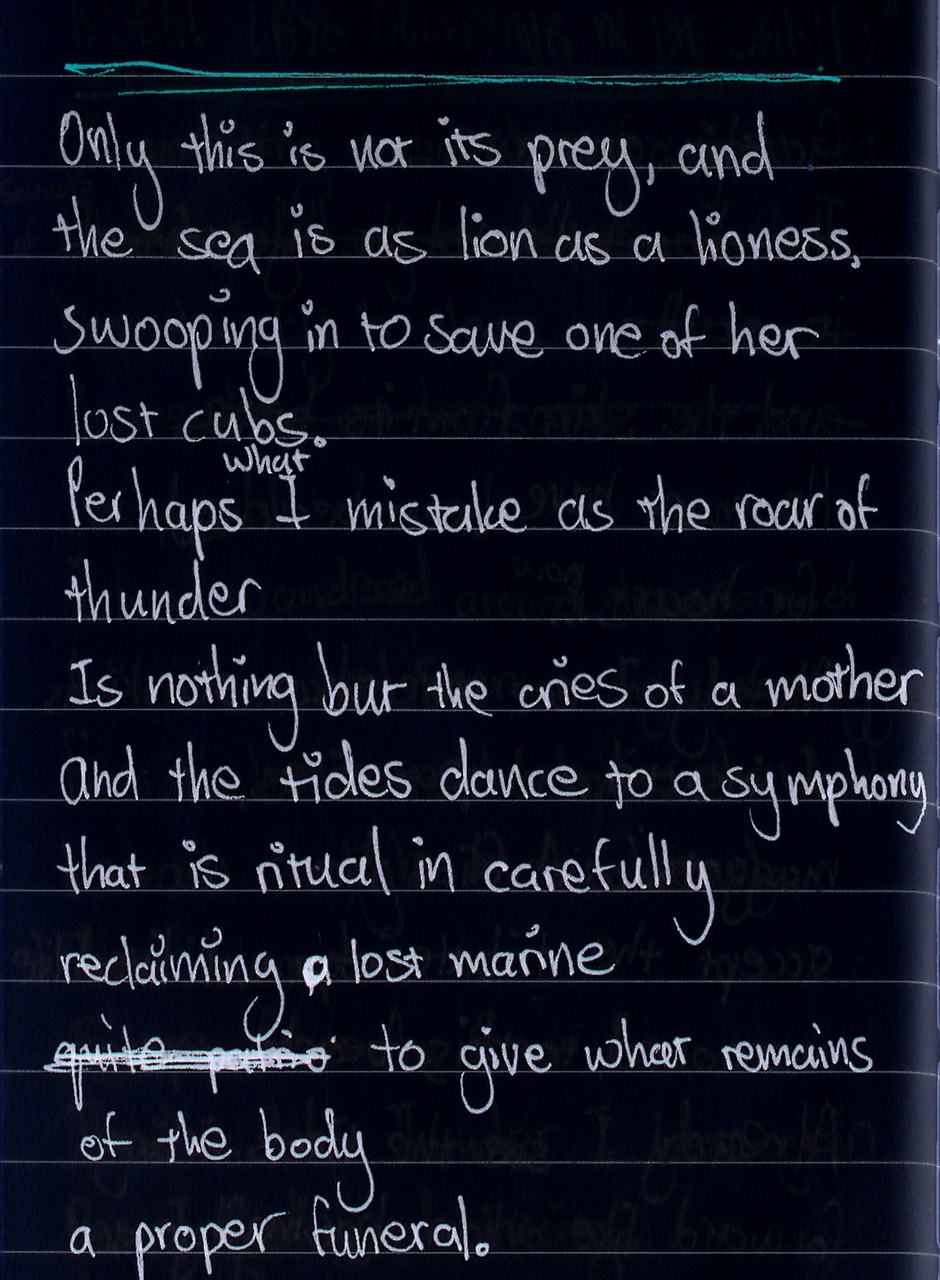 Only this is not its prey, and
the sea is as lion as a lioness,
swooping in to save one of her
lost cubs.
what
Perhaps I mistake as the roar of
thunder
Is nothing but the cries of a mother
and the tides dance to a symphony
that is ritual in carefully
reclaiming a lost marine
to give what remains
of the body
a proper funeral.